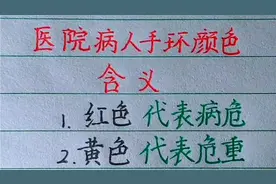 医院病人手环颜色
含义
1.红色代表病危
2.黄色代表危重